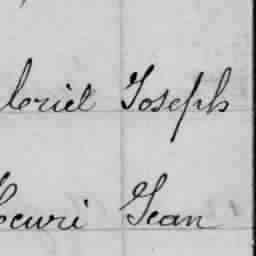 briel Joseph
Henri Jean